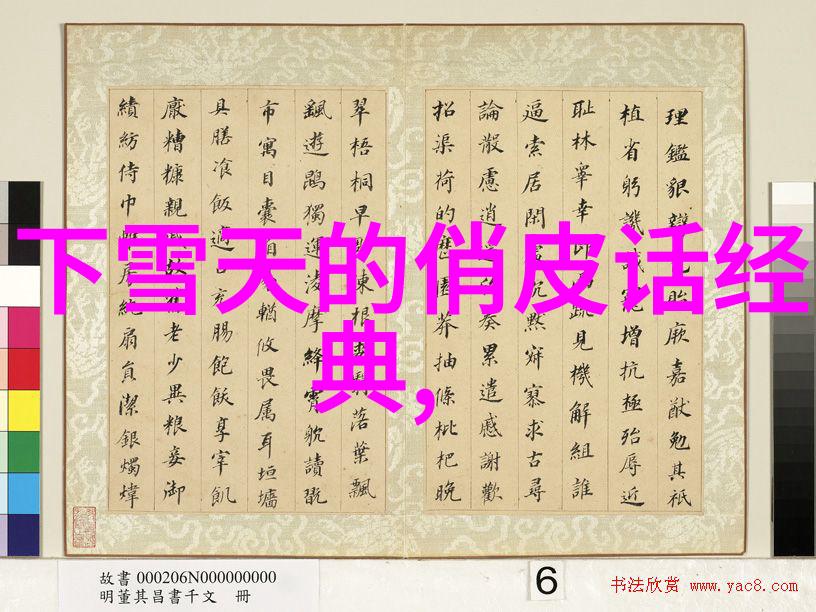 下雪天的俏皮话经典,
理鑑貌辯色貽厥嘉猷勉其祗
植省躬譏誡寵增抗極殆辱近
耻林睾幸即兩疏見機解組誰
逼索居閑處沉默寂寥求古尋
論散慮逍遙欣奏累遣慼謝歡
招渠荷的歷園莽抽條枇杷晚
翠梧桐早凋陳根委翳落葉飄
飖遊鵾獨運凌摩絳霄耽讀翫
市寓目囊箱易輶攸畏属耳垣墻
具膳飡飯適口充腸飽飫享宰飢
厭糟糠親戚故舊老少異粮妾御
績紡侍巾帷房紈扇員潔銀燭煒
故書 000206N000000000
明董其昌書千文 冊
6
书法欣赏 www.yac8.com